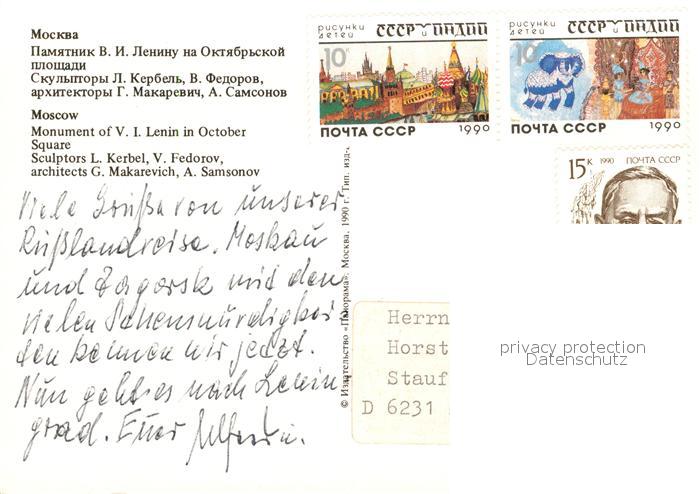 Москва
Памятник В. И. Ленину на Октябрьской
площади
Скульпторы Л. Кербель, В. Федоров,
архитекторы Г. Макаревич, А. Самсонов
Moscow
Monument of V. I. Lenin in October
Square
Sculptors L. Kerbel, V. Fedorov,
architects G. Makarevich, A. Samsonov
рисунки детей СССР и Индии
10к
ПОЧТА СССР 1990
рисунки детей СССР и Индии
10к
ПОЧТА СССР 1990
15к 1990 ПОЧТА СССР
Viele Grüße von unserer
Rußlandreise. Moskau
und Zagorsk mit den
vielen Sehenswürdigkei-
ten kennen wir jetzt.
Nun geht es nach Lenin
grad. Euer
© Издательство «Панорама», Москва, 1990 г. Тип. изд-
Herrn
Horst
Stauf
D 6231
privacy protection
Datenschutz